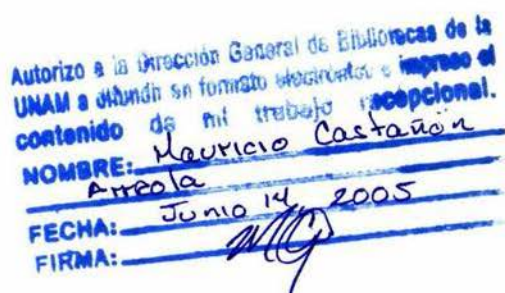 Autorizo a la Dirección General de Bibliotecas de la
UNAM a difundir en formato electrónico e impreso el
contenido de mi trabajo recepcional.
NOMBRE: Mauricio Castañón
Arreola
FECHA: Junio 14, 2005
FIRMA: